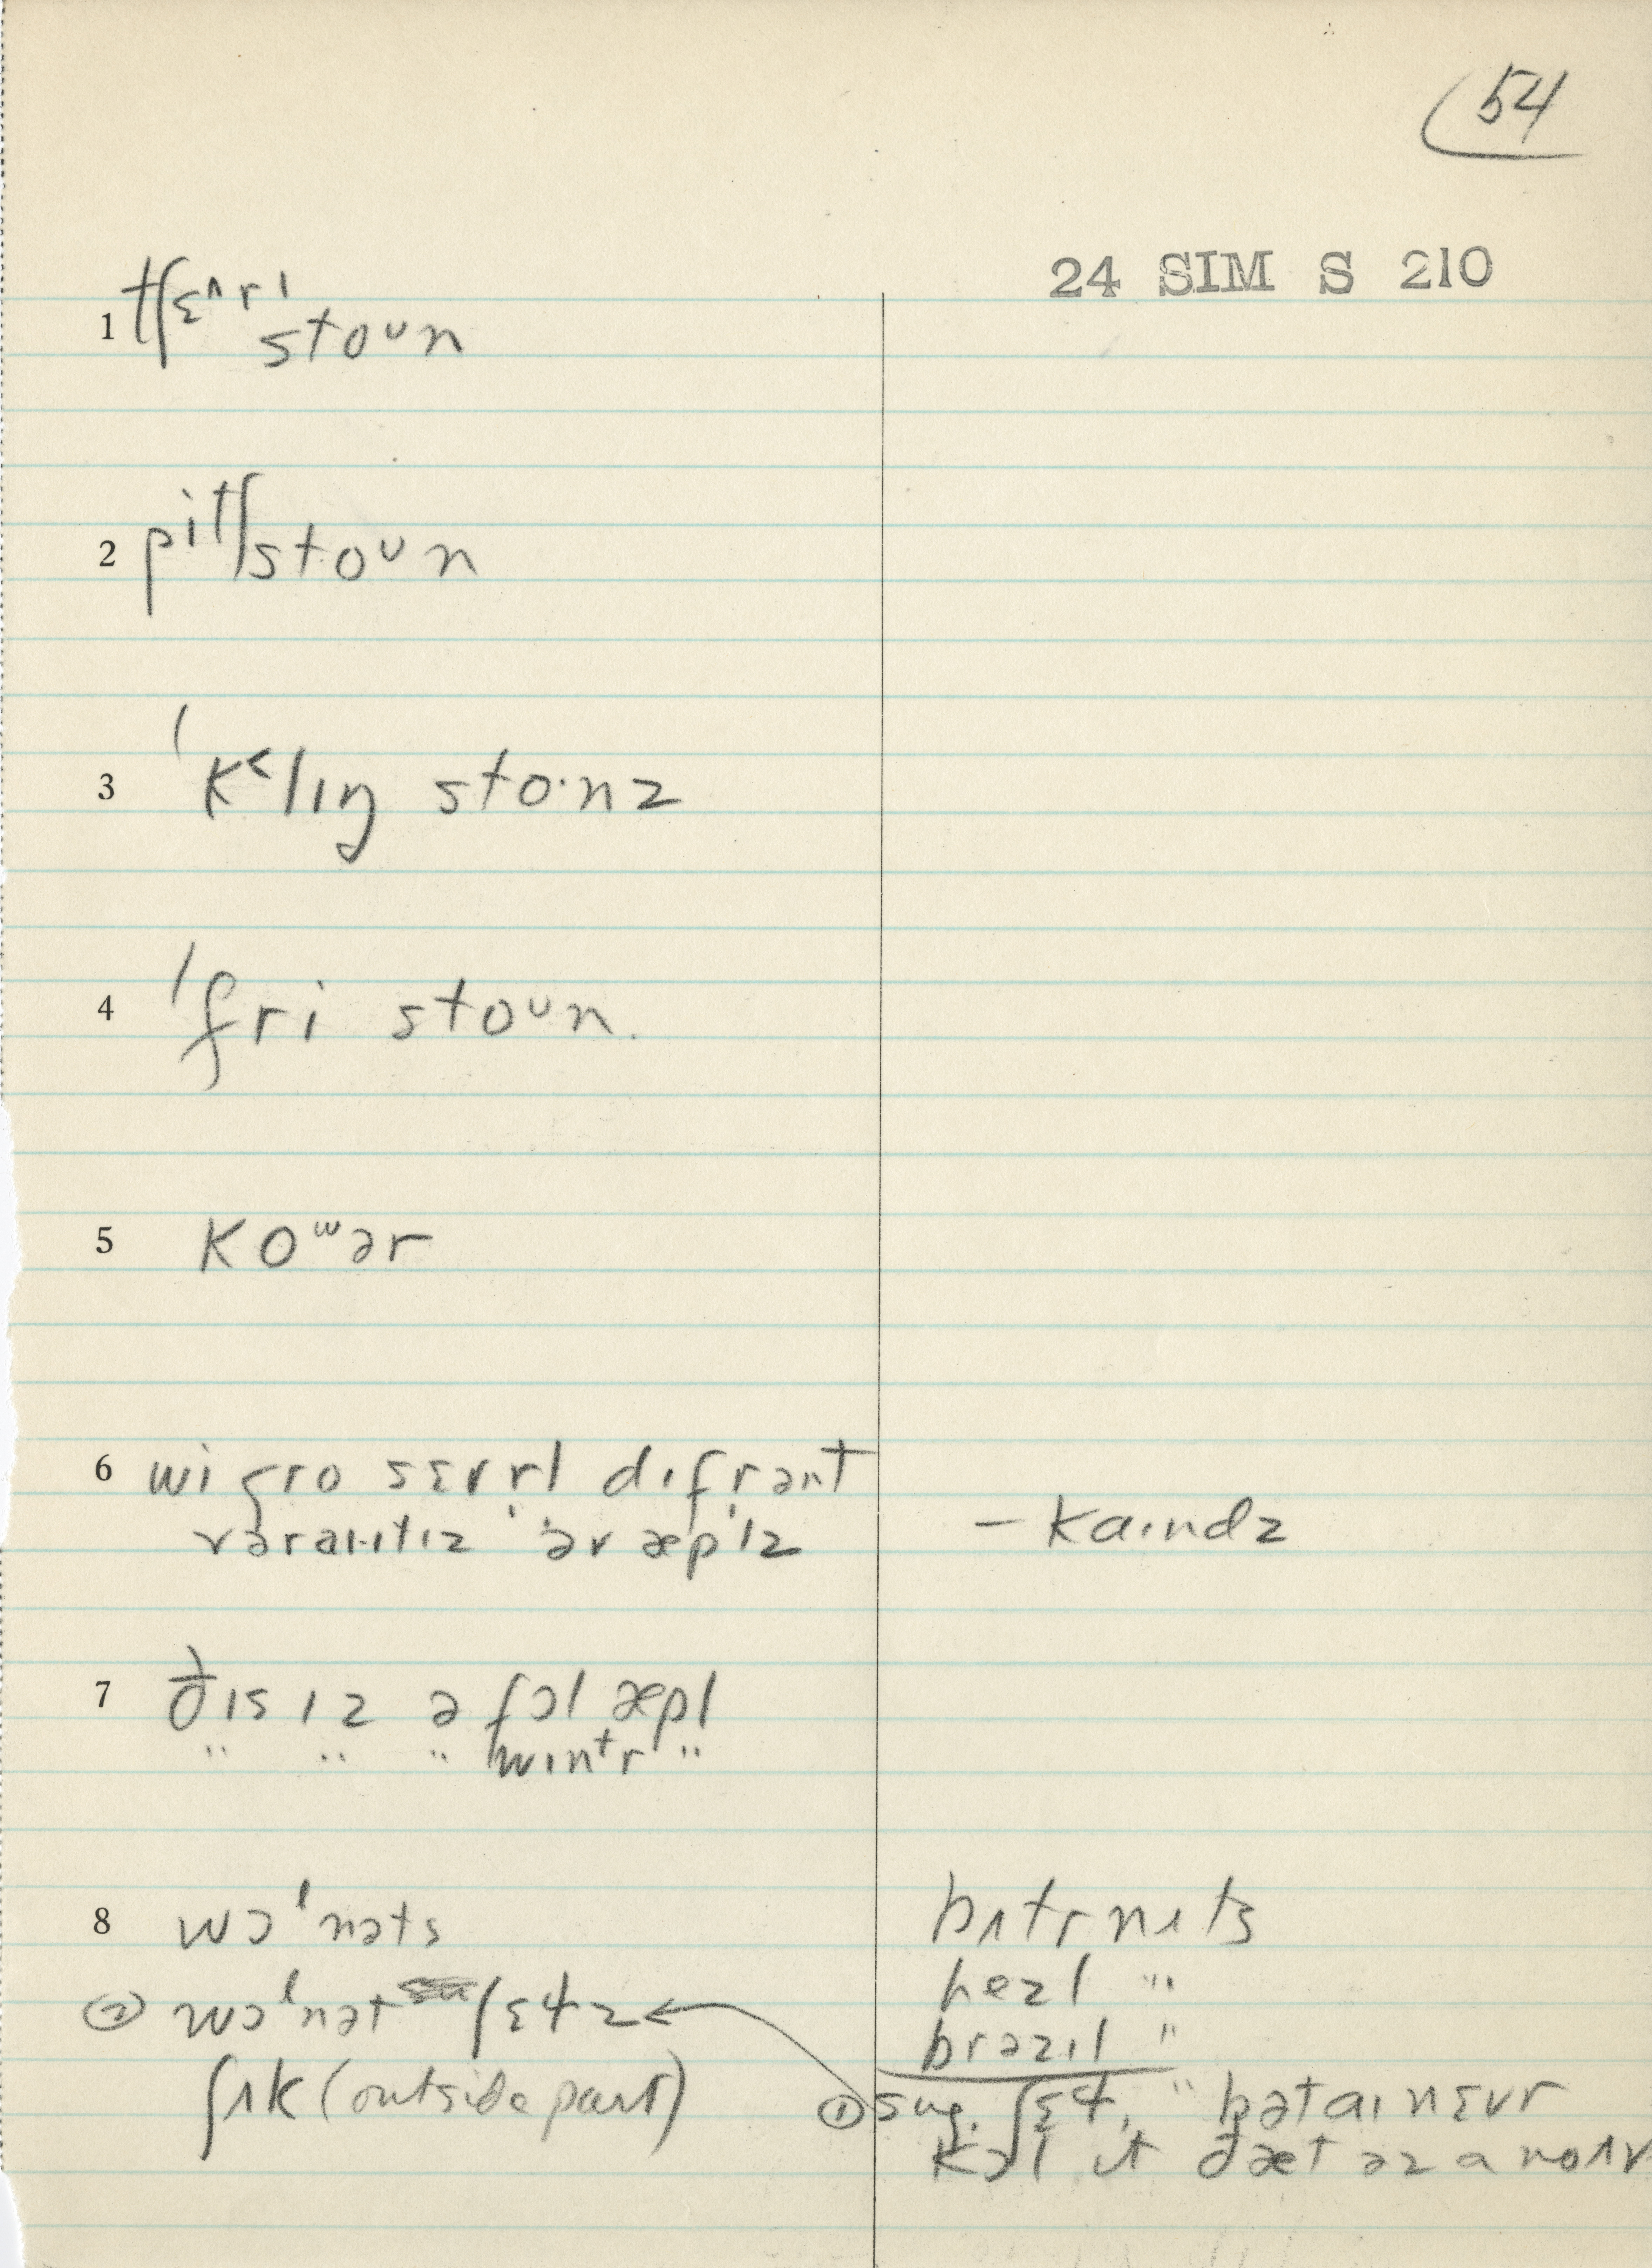 54
24 SIM S 210
1 tʃɛ^ri
stoᴜn
2 pitʃstoᴜn
3 ˈk<lɪŋ sto·nz
4 ˈfri stoᴜn.
5 koʷər
6 wi gro sɛvrl dɪfrənt
vəraɪɪtɪz əv æplz
– kaɪndz
7 ðɪs ɪz ə fɔl æpl
" " " wɪntr "
8 wɔlnəts
bʌtrnʌts
② wɔlnət ʃɛɫz
hezl "
brəzɪl "
ʃʌk (outside part)
① sug. ʃɛɫ, " bət aɪ nɛvr
kɔl ɪt ðæt əz a noʌv